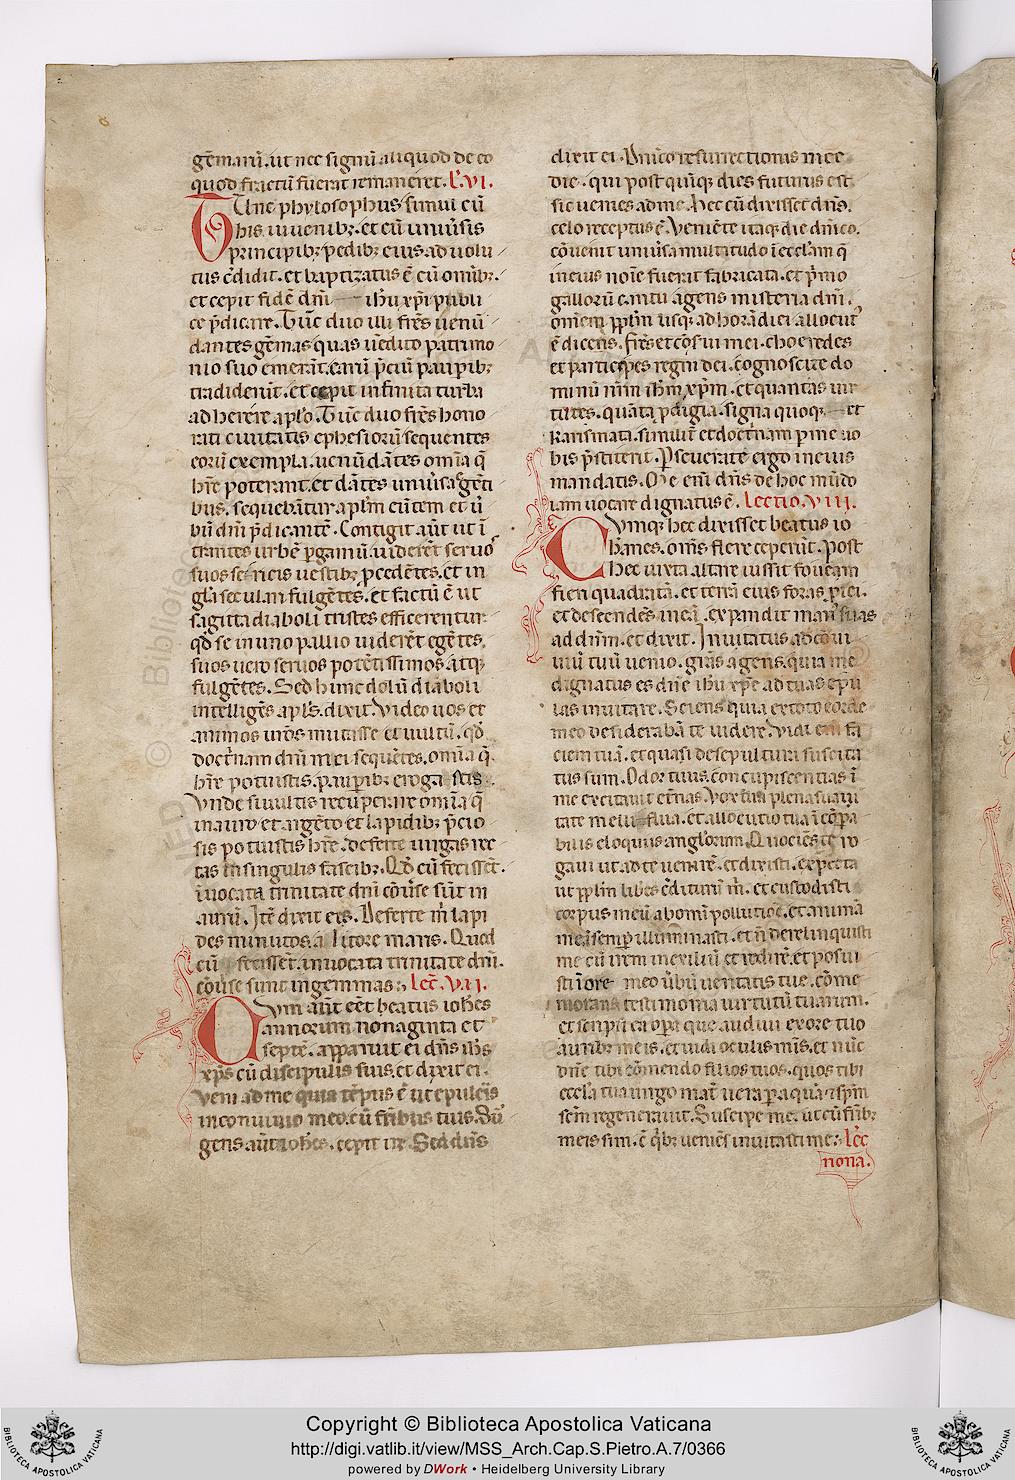 gēmarū. ut nec signū aliquod de eo
quod fractū fuerat remaneret. l̄. vi.
Tunc phylosophus simul cū
his iuvenibꝫ. et cū univ̄sis
principibꝫ pedibꝫ eius ad volu
tus c̄didit. et baptizatus ē cū om̄ibꝫ.
et cepit fidē dn̄i ihū xp̄i publi
ce p̄dicare. Tūc duo illi fr̄es venū
dantes gēmas quas
nio suo emerāt. earū p̄ciū paup̄ibꝫ
tradiderūt. et cepit infinita turba
adherere ap̄lo. Tūc duo fr̄es hono
rati civitatis ephesiorū sequentes
eorū exempla. venūdātes om̄ia q̄
hr̄e poterant. et dātes univ̄sa egēti
bus. sequebātur ap̄lm eūtem et v̄
bū dn̄i p̄dicantē. Contigit aūt ut ī
trantes urbē p̄gamū. viderēt servos
suos sericis vestibꝫ p̄cedētes. et in
gl̄a seculari fulgētes. et factū ē ut
sagitta diaboli tristes efficerentur
qd̄ se in uno pallio viderēt egētes.
suos vero servos potētissimos atqꝫ
fulgētes. Sed hunc dolū diaboli
intelligēs ap̄ls. dixit. Video vos et
animos vr̄os mutasse et vultū. qd̄
doct̄nam dn̄i mei sequētes. om̄ia q̄
hr̄e potuistis. paup̄ibꝫ erogastis.
Unde si vultis recuperare om̄ia q̄
in auro et argēto et lapidibꝫ p̄cio
sis potuistis hr̄e. deferte virgas rec
tas in singulis fascibꝫ. Qd̄ cū fecisset.
īvocata trinitate dn̄i cōv̄se sūt in
aurū. Itē dixit eis. Deferte m̄ lapi
des minutos a litore maris. Quod
cū fecissēt. invocata trinitate dn̄i.
cōv̄se sunt in gemmas. lec̄. vii.
Cum aūt eēt beatus ioh̄es
annorum nonaginta et
septē. apparuit ei dn̄s ih̄s
xp̄s cū discipulis suis. et dixit ei.
Veni ad me quia tēpus ē ut epuleris
in convivio meo. cū fr̄ibus tuis. Sur
gens aūt ioh̄es. cepit ire. Sed dn̄s
dixit ei. Dn̄ico resurrectionis mee
die. qui post quīqꝫ dies futurus est
sic venies ad me. Hec cū dixisset dn̄s.
celo receptus ē. Veniēte itaqꝫ die dn̄ico.
cōvenit univ̄sa multitudo ī eccl̄am q̄
in eius noīe fuerat fabricata. et p̄mo
gallorū cantu agens misteria dn̄i.
om̄em pp̄lm usqꝫ ad horā diei allocut'
ē dicens. fr̄es et cōs̄vi mei. choeredes
et participes regni dei. cognoscite do
minū nr̄m ih̄m xp̄m. et quantas vir
tutes. quāta p̄digia. signa quoqꝫ et
karismata. simul et doct̄nam p̄ me vo
bis p̄stiterit. P̄severate ergo in eius
mandatis. Me eni dn̄s de hoc mūdo
iam vocare dignatus ē. Lectio. viii.
Cumqꝫ hec dixisset beatus io
hānes. om̄s flere ceperūt. Post
hec iuxta altare iussit foveam
fieri quadratā. et terrā eius foras p̄ici.
et descendēs in eā. expandit man' suas
ad dn̄m. et dixit. Invitatus ad cōvi
viū tuū venio. gr̄as agens. quia me
dignatus es dn̄e ihū xp̄e ad tuas epu
las invitare. Sciens quia ex toto corde
meo desiderabā te videre. Vidi fa
ciem tuā. et quasi de sepultura suscita
tus sum. Odor tuus. concupiscentias ī
me excitavit et̄nas. Vox tua plena suavi
tate meliflua. et allocutio tua īcōpa
bilis eloquiis angl̄orum. Quociens te ro
gavi ut ad te venirē. et dixisti. expecta
ut pp̄lm liberes c̄diturū m̄. et custodisti
corpus meū ab om̄i pollutioē. et animā
meā semp̄ illuminasti. et n̄ dereliquisti
me cū irem in exiliū et redirē. et posui
sti ī ore meo v̄bū veritatis tue. cōme
morans testimonia virtutū tuarum.
et scripsi ea opa que audivi ex ore tuo
auribꝫ meis. et vidi oculis meis. et nūc
dn̄e tibi cōmendo filios tuos. quos tibi
eccl̄a tua virgo mat̄ vera p̄ aquā et sp̄m
sc̄m regeneravit. Suscipe me. ut cū fr̄ibꝫ
meis sim. c q̄bꝫ veniēs invitasti me. Lec̄
nona.
Copyright © Biblioteca Apostolica Vaticana
http://digi.vatlib.it/view/MSS_Arch.Cap.S.Pietro.A.7/0366
powered by DWork • Heidelberg University Library